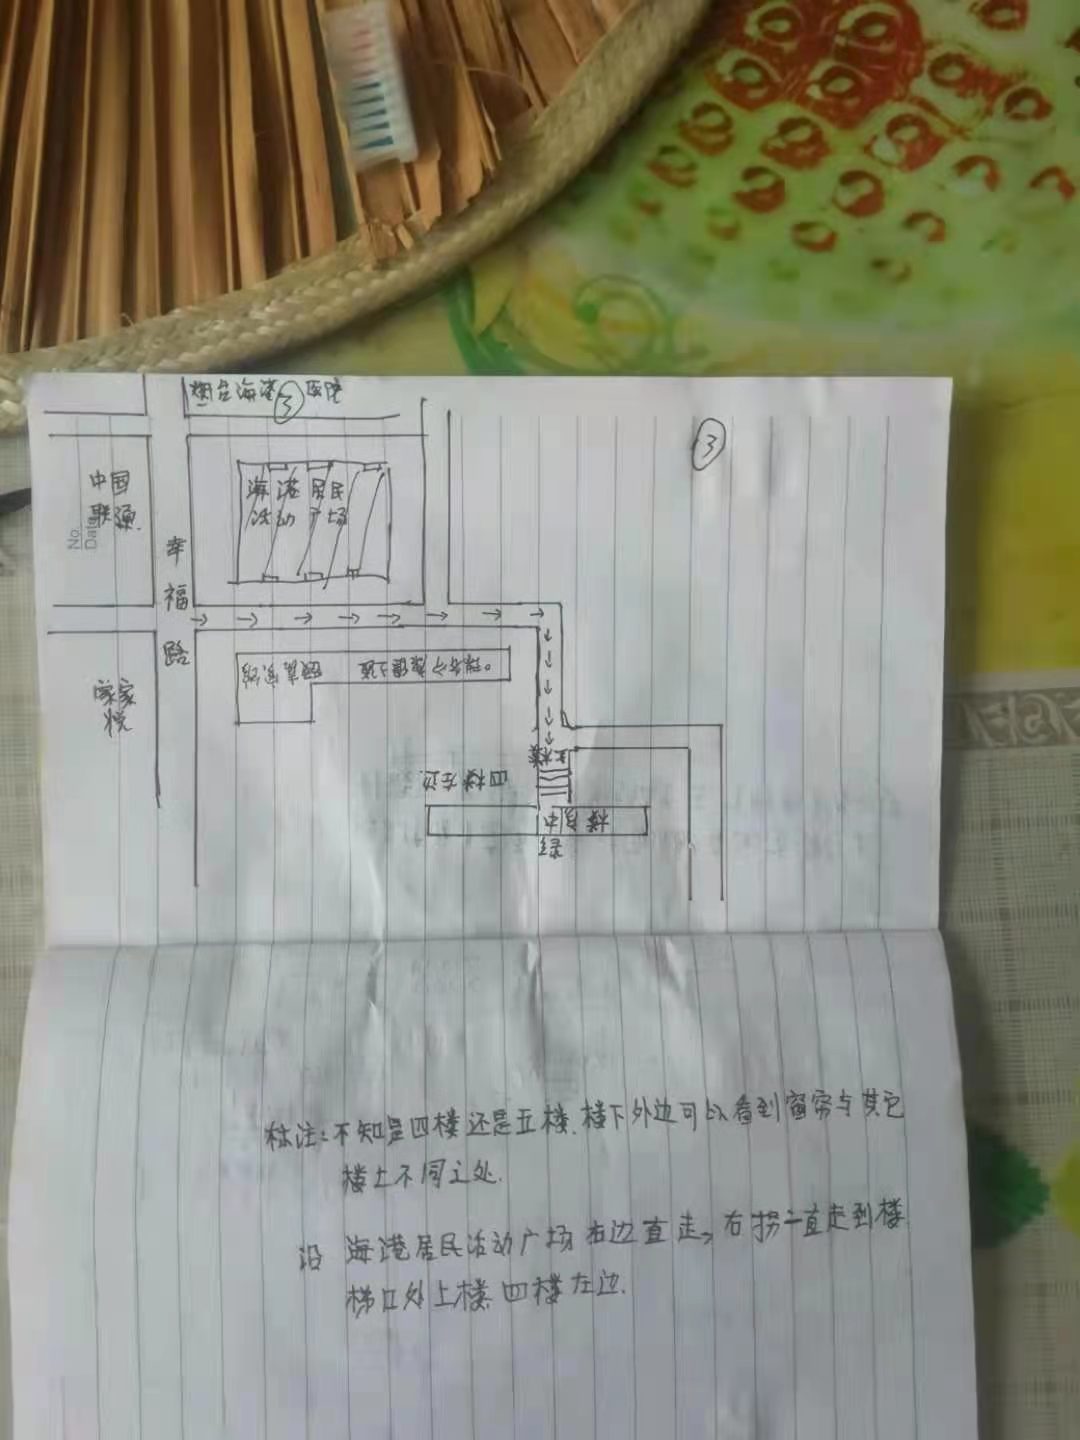 烟台海港③医院
③
海港居民
活动广场
中国
联通
No.
Date
幸
福
路
家家
悦
上楼
四楼左边
标注：不知是四楼还是五楼.楼下外边可以看到窗帘与其它
楼上不同之处.
沿 海港居民活动广场右边直走，右拐一直走到楼
梯口外上楼 四楼左边.